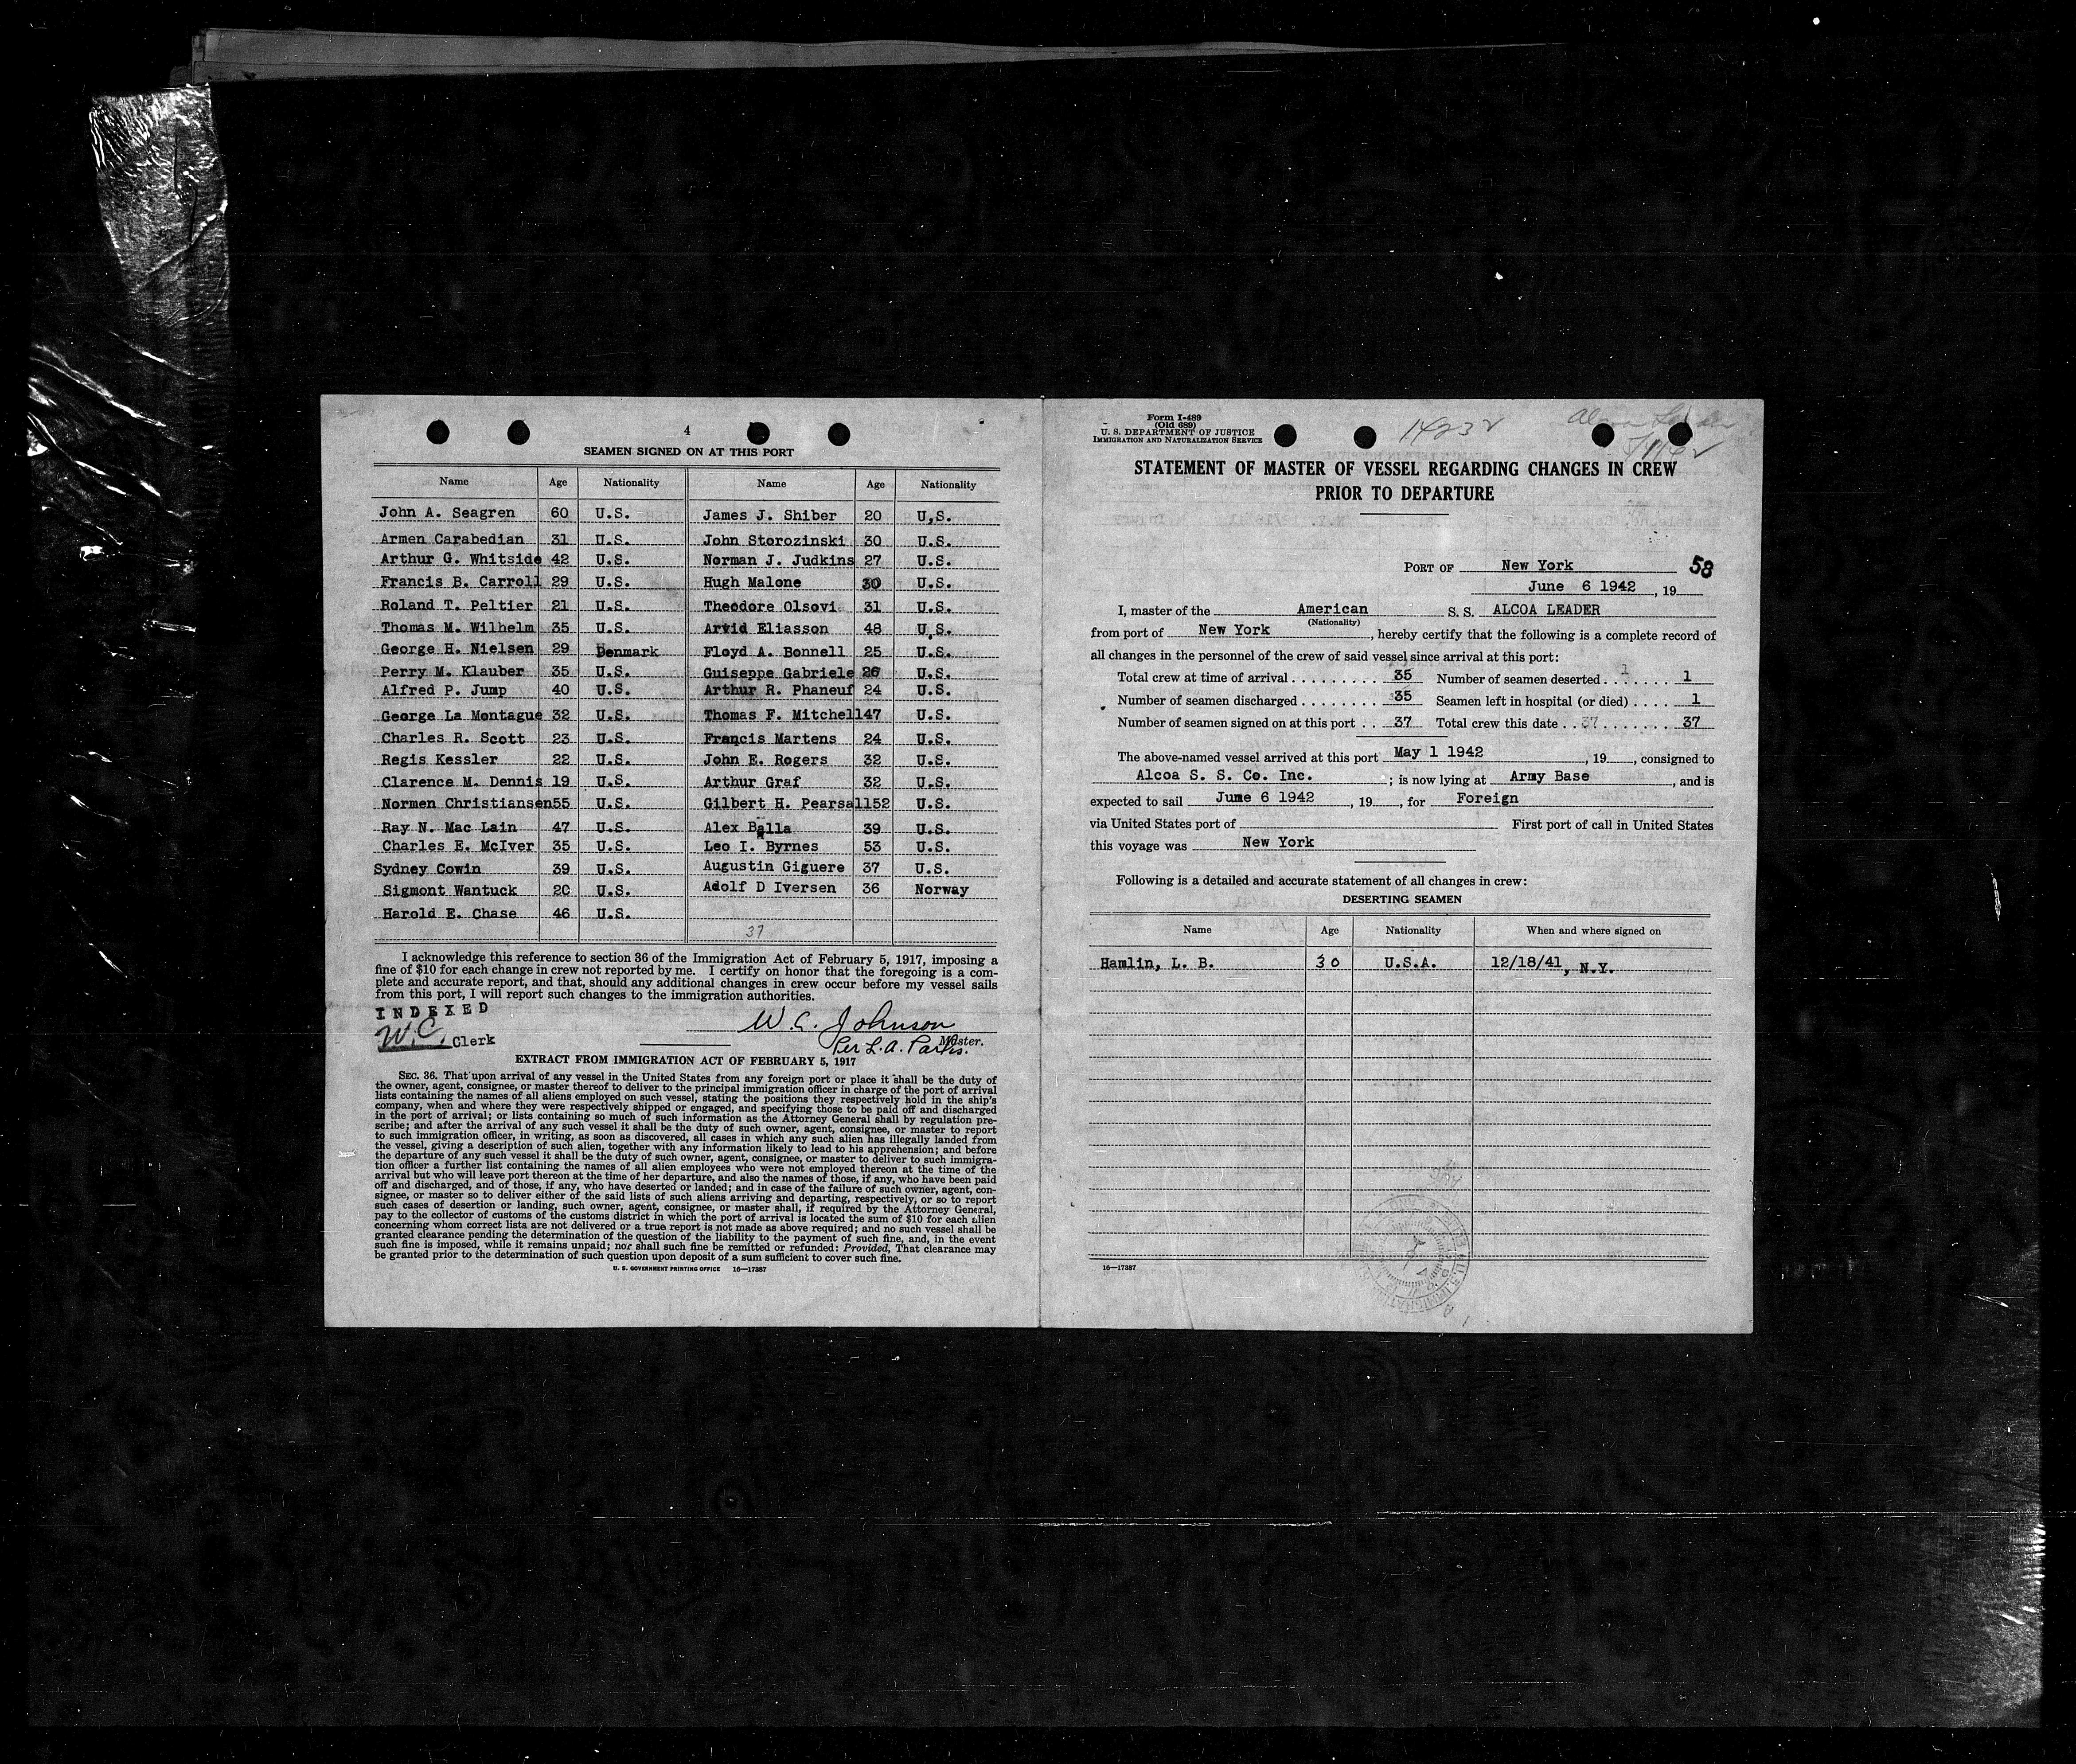 4
SEAMEN SIGNED ON AT THIS PORT
Name Age Nationality Name Age Nationality
John A. Seagren 60 U.S. James J. Shiber 20 U.S.
Armen Carabedian 31 U.S. John Storozinski 30 U.S.
Arthur G. Whitside 42 U.S. Norman J. Judkins 27 U.S.
Francis B. Carroll 29 U.S. Hugh Malone 30 U.S.
Roland T. Peltier 21 U.S. Theodore Olsovi 31 U.S.
Thomas M. Wilhelm 35 U.S. Arvid Eliasson 48 U.S.
George H. Nielsen 29 Denmark Floyd A. Bonnell 25 U.S.
Perry M. Klauber 35 U.S. Guiseppe Gabriele 26 U.S.
Alfred P. Jump 40 U.S. Arthur R. Phaneuf 24 U.S.
George La Montague 32 U.S. Thomas F. Mitchell 47 U.S.
Charles R. Scott 23 U.S. Francis Martens 24 U.S.
Regis Kessler 22 U.S. John E. Rogers 32 U.S.
Clarence M. Dennis 19 U.S. Arthur Graf 32 U.S.
Normen Christiansen 55 U.S. Gilbert H. Pearsall 52 U.S.
Ray N. Mac Lain 47 U.S. Alex Balla 39 U.S.
Charles E. McIver 35 U.S. Leo I. Byrnes 53 U.S.
Sydney Cowin 39 U.S. Augustin Giguere 37 U.S.
Sigmont Wantuck 20 U.S. Adolf D Iversen 36 Norway
Harold E. Chase 46 U.S.
37
I acknowledge this reference to section 36 of the Immigration Act of February 5, 1917, imposing a
fine of $10 for each change in crew not reported by me. I certify on honor that the foregoing is a com-
plete and accurate report, and that, should any additional changes in crew occur before my vessel sails
from this port, I will report such changes to the immigration authorities.
INDEXED
W.C. Clerk
W. C. Johnson
Master.
Per L. A. Parks.
EXTRACT FROM IMMIGRATION ACT OF FEBRUARY 5, 1917
SEC. 36. That upon arrival of any vessel in the United States from any foreign port or place it shall be the duty of
the owner, agent, consignee, or master thereof to deliver to the principal immigration officer in charge of the port of arrival
lists containing the names of all aliens employed on such vessel, stating the positions they respectively hold in the ship's
company, when and where they were respectively shipped or engaged, and specifying those to be paid off and discharged
in the port of arrival; or lists containing so much of such information as the Attorney General shall by regulation pre-
scribe; and after the arrival of any such vessel it shall be the duty of such owner, agent, consignee, or master to report
to such immigration officer, in writing, as soon as discovered, all cases in which any such alien has illegally landed from
the vessel, giving a description of such alien, together with any information likely to lead to his apprehension; and before
the departure of any such vessel it shall be the duty of such owner, agent, consignee, or master to deliver to such immigra-
tion officer a further list containing the names of all alien employees who were not employed thereon at the time of the
arrival but who will leave port thereon at the time of her departure, and also the names of those, if any, who have been paid
off and discharged, and of those, if any, who have deserted or landed; and in case of the failure of such owner, agent, con-
signee, or master so to deliver either of the said lists of such aliens arriving and departing, respectively, or so to report
such cases of desertion or landing, such owner, agent, consignee, or master shall, if required by the Attorney General,
pay to the collector of customs of the customs district in which the port of arrival is located the sum of $10 for each alien
concerning whom correct lists are not delivered or a true report is not made as above required; and no such vessel shall be
granted clearance pending the determination of the question of the liability to the payment of such fine, and, in the event
such fine is imposed, while it remains unpaid; nor shall such fine be remitted or refunded: Provided, That clearance may
be granted prior to the determination of such question upon deposit of a sum sufficient to cover such fine.
U. S. GOVERNMENT PRINTING OFFICE 16—17387
Form I-489
(Old 689)
U. S. DEPARTMENT OF JUSTICE
IMMIGRATION AND NATURALIZATION SERVICE
14232
Alcoa Leader
STATEMENT OF MASTER OF VESSEL REGARDING CHANGES IN CREW
PRIOR TO DEPARTURE
PORT OF New York 58
June 6 1942, 19
I, master of the American S. S. ALCOA LEADER
(Nationality)
from port of New York, hereby certify that the following is a complete record of
all changes in the personnel of the crew of said vessel since arrival at this port:
Total crew at time of arrival . . . . . . . . . 35 Number of seamen deserted . . . . . . . 1 1
Number of seamen discharged . . . . . . . . 35 Seamen left in hospital (or died) . . . . 1
Number of seamen signed on at this port . . 37 Total crew this date . . 37 . . . . . . . 37
The above-named vessel arrived at this port May 1 1942, 19, consigned to
Alcoa S. S. Co. Inc. ; is now lying at Army Base, and is
expected to sail June 6 1942, 19, for Foreign
via United States port of First port of call in United States
this voyage was New York
Following is a detailed and accurate statement of all changes in crew:
DESERTING SEAMEN
Name Age Nationality When and where signed on
Hamlin, L. B. 30 U.S.A. 12/18/41, N.Y.
16—17387